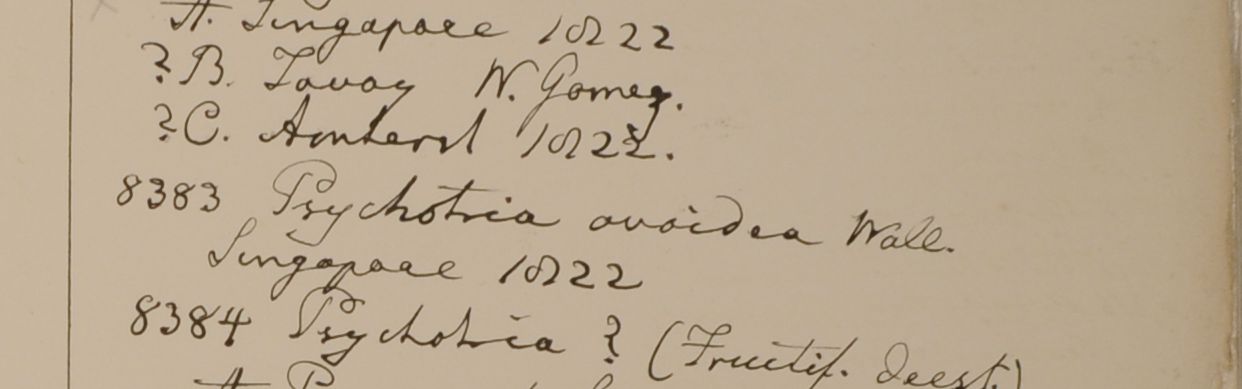 A. Singapore 1822
?B. Tavoy W. Gomez.
?C. Amherst 1822.
8383 Psychotria ovoidea Wall.
Singapore 1822
8384 Psychotria ? (Fructif. deest.)